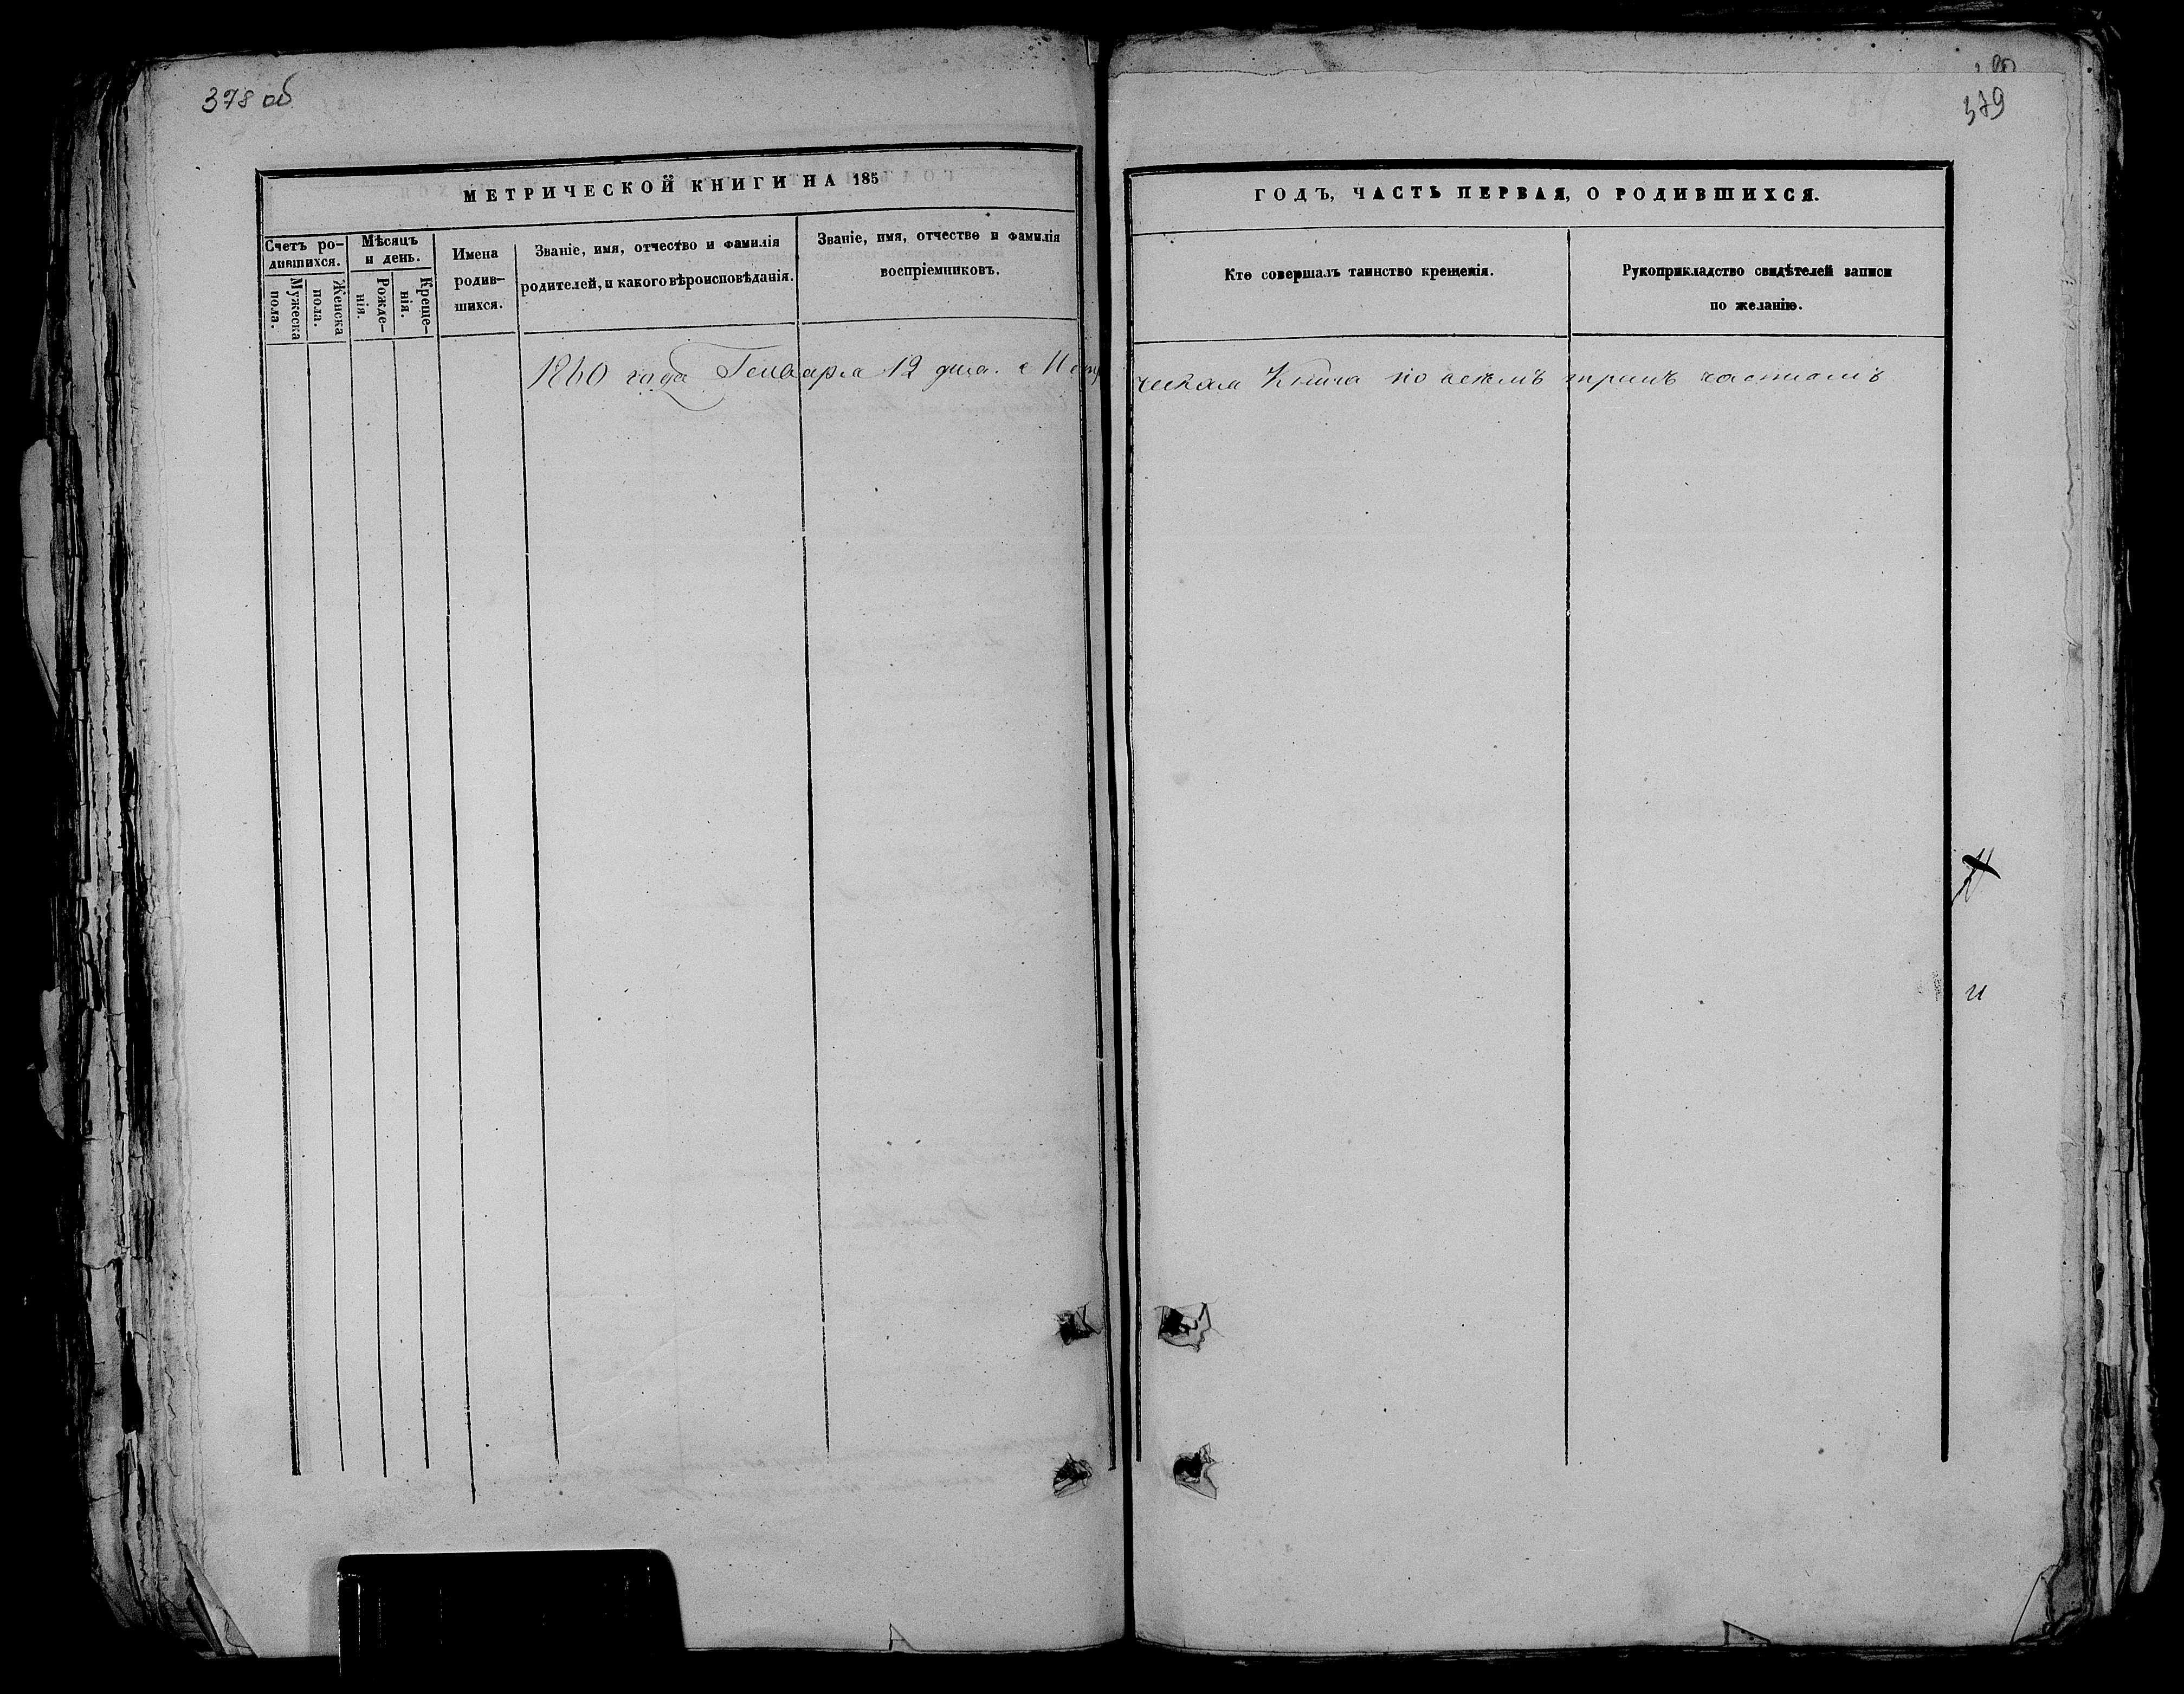 378 об
379
МЕТРИЧЕСКОЙ КНИГИ НА 185
ГОДЪ, ЧАСТЬ ПЕРВАЯ, О РОДИВШИХСЯ.
Счетъ ро-
дившихся.
Мужеска
пола.
Женска
пола.
Мѣсяцъ
и день.
Рожде-
нія.
Креще-
нія.
Имена
родив-
шихся.
Званіе, имя, отчество и фамилія
родителей, и какого вѣроисповѣданія.
Званіе, имя, отчество и фамилія
воспріемниковъ.
Кто совершалъ таинство крещенія.
Рукоприкладство свидѣтелей записи
по желанію.
1860 года Генваря 12 дня. Сія Метри
ческая Книга по всѣмъ тремъ частямъ
и